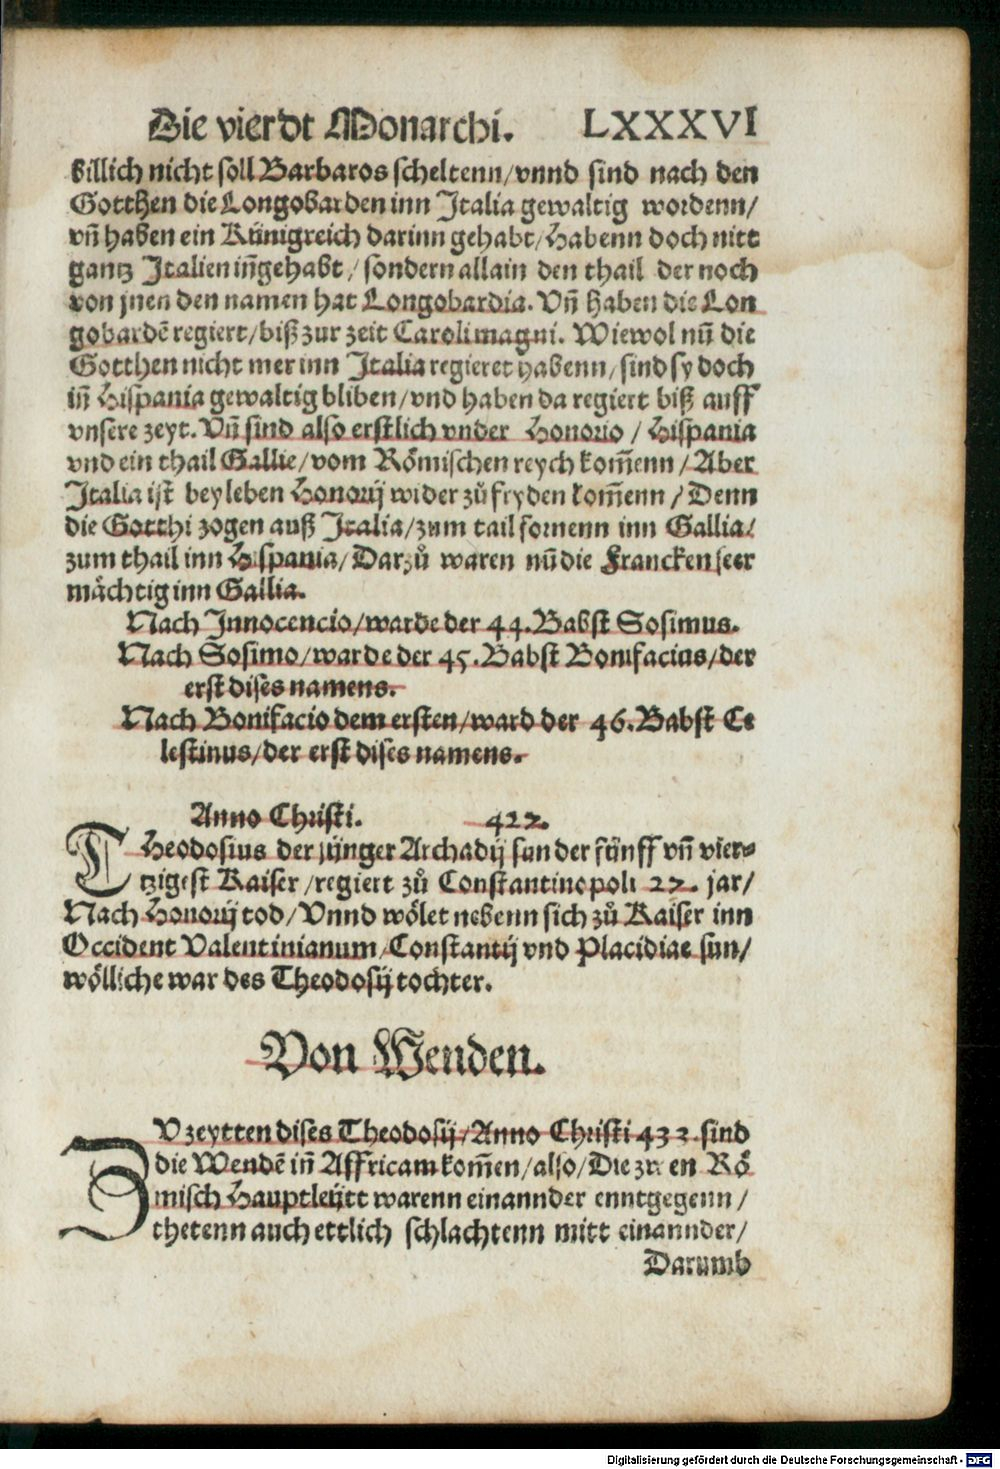 Die vierdt Monarchi. LXXXVI
billich nicht soll Barbaros scheltenn/vnnd sind nach den
Gotthen die Longobarden inn Italia gewaltig wordenn/
vñ haben ein Künigreich darinn gehabt/habenn doch nitt
gantz Italien iñgehabt/sondern allain den thail der noch
von jnen den namen hat Longobardia. Vñ haben die Lon
gobardẽ regiert/biß zur zeit Caroli magni. Wiewol nũ die
Gotthen nicht mer inn Italia regieret habenn/sind sy doch
iñ Hispania gewaltig bliben/vnd haben da regiert biß auff
vnsere zeyt. Vñ sind also erstlich vnder Honorio/Hispania
vnd ein thail Gallie/vom Römischen reych kom̃enn/Aber
Italia ist bey leben Honorij wider zů fryden kom̃enn/Denn
die Gotthi zogen auß Italia/zum tail fornenn inn Gallia/
zum thail inn Hispania/Darzů waren nũ die Francken seer
mächtig inn Gallia.
Nach Innocencio/warde der 44. Babst Sosimus.
Nach Sosimo/warde der 45. Babst Bonifacius/der
erst dises namens.
Nach Bonifacio dem ersten/ward der 46. Babst Ce
lestinus/der erst dises namens.
Anno Christi. 422.
THeodosius der jünger Archadij sun der fünff vñ vier-
tzigest Kaiser/regiert zů Constantinopoli 27. jar/
Nach Honorij tod/Vnnd wölet nebenn sich zů Kaiser inn
Occident Valentinianum/Constantij vnd Placidiae sun/
wölliche war des Theodosij tochter.
Von Wenden.
ZV zeytten dises Theodosij/Anno Christi 432. sind
die Wendẽ iñ Affricam kom̃en/also/Die zwen Rö
misch Hauptleütt warenn einannder enntgegenn/
thetenn auch ettlich schlachtenn mitt einannder/
Darumb
Digitalisierung gefördert durch die Deutsche Forschungsgemeinschaft - DFG